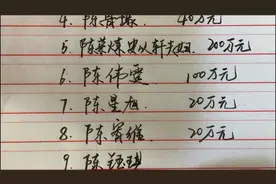 4. 陈 40万元
5. 陈荣炼安以轩夫妇 200万元
6. 陈伟霆 100万元
7. 陈星旭 20万元
8. 陈宥维 20万元
9. 陈钰琪